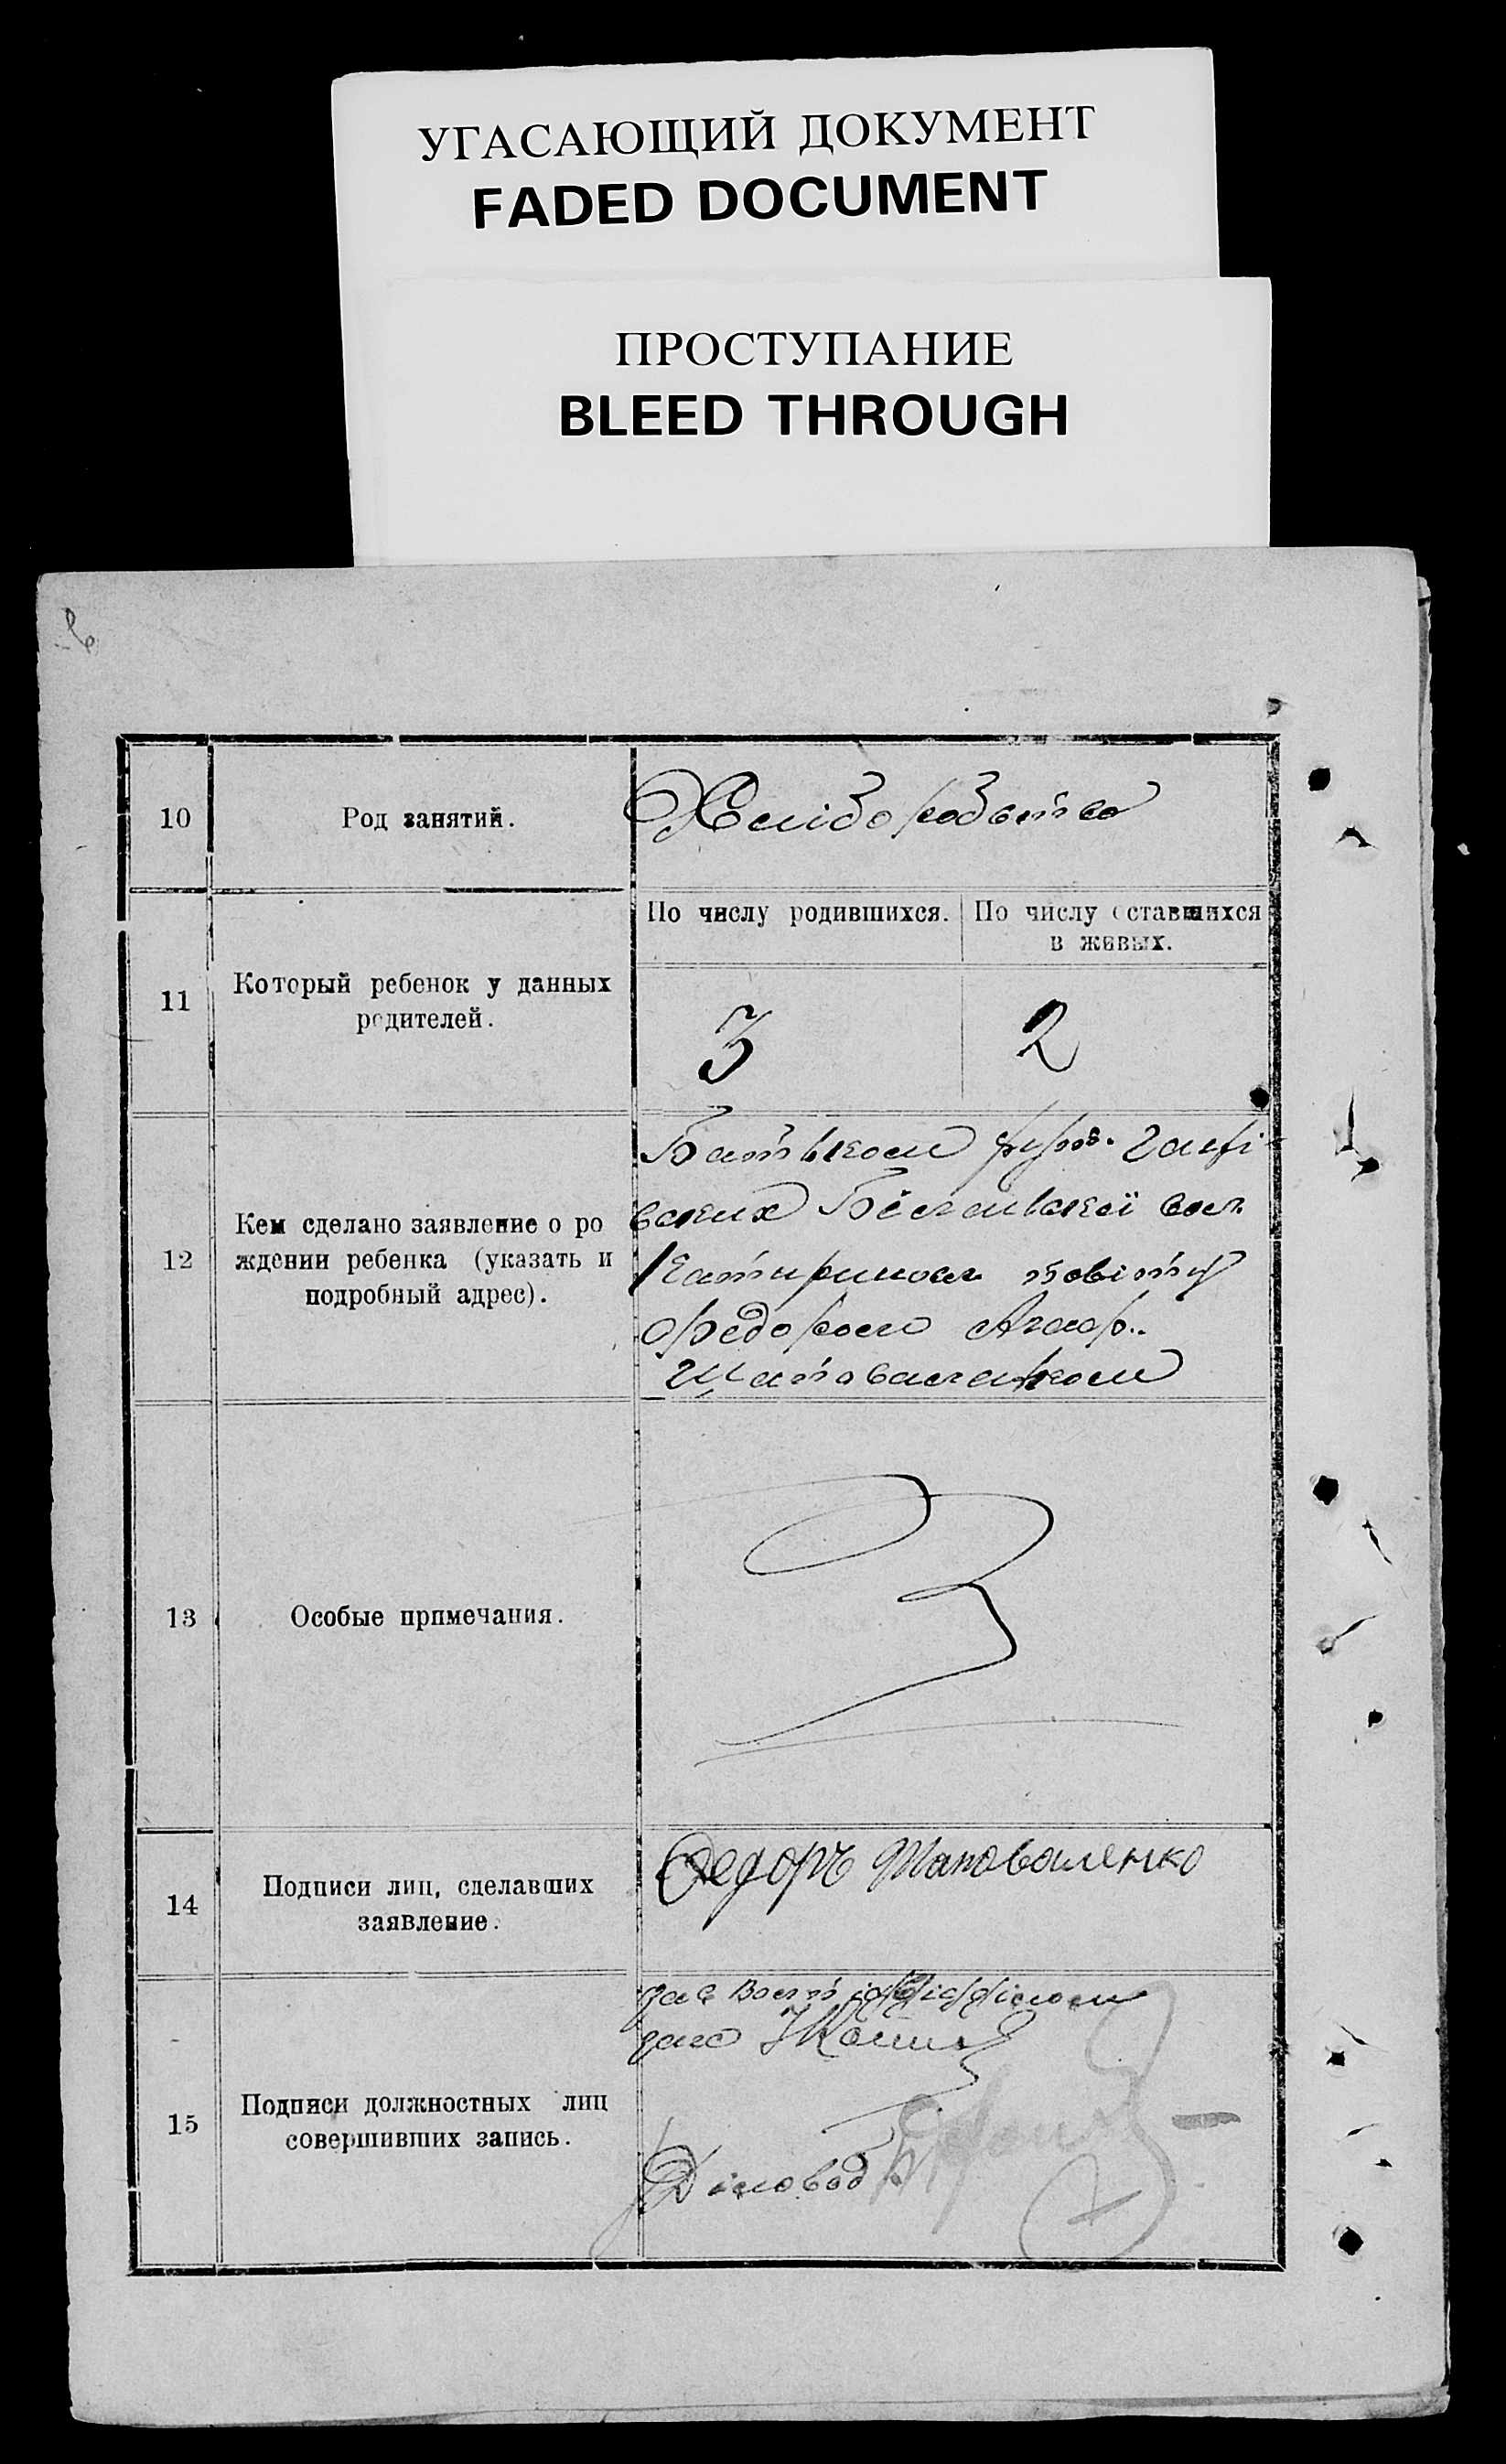 УГАСАЮЩИЙ ДОКУМЕНТ
FADED DOCUMENT
ПРОСТУПАНИЕ
BLEED THROUGH
10
Род занятий.
Хліборобство
11
Который ребенок у данных
родителей.
По числу родившихся.
По число оставшихся
в живых.
3
2
12
Кем сделано заявление о ро
ждении ребенка (указать и
подробный адрес).
Батьком
вол.
Катериносл. повіту
Федором
Шаповаленком
13
Особые примечания.
14
Подписи лиц, сделавших
заявление.
Федоръ Шаповаленко
15
Подписи должностных лиц
совершивших запись.
Діловод